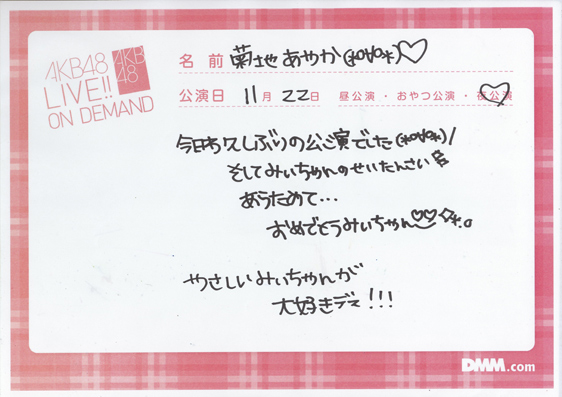 AKB48
LIVE!!
ON DEMAND
AKB
48
名前 菊地あやか(*°∀°*)♡
公演日 11月 22日 昼公演・おやつ公演・夜公演
今日わ久しぶりの公演でした(*°∀°*)/
そしてみぃちゃんのせいたんさい
あらためて…
おめでとうみぃちゃん♡♡
やさしいみぃちゃんが
大好きデス!!!
DMM.com